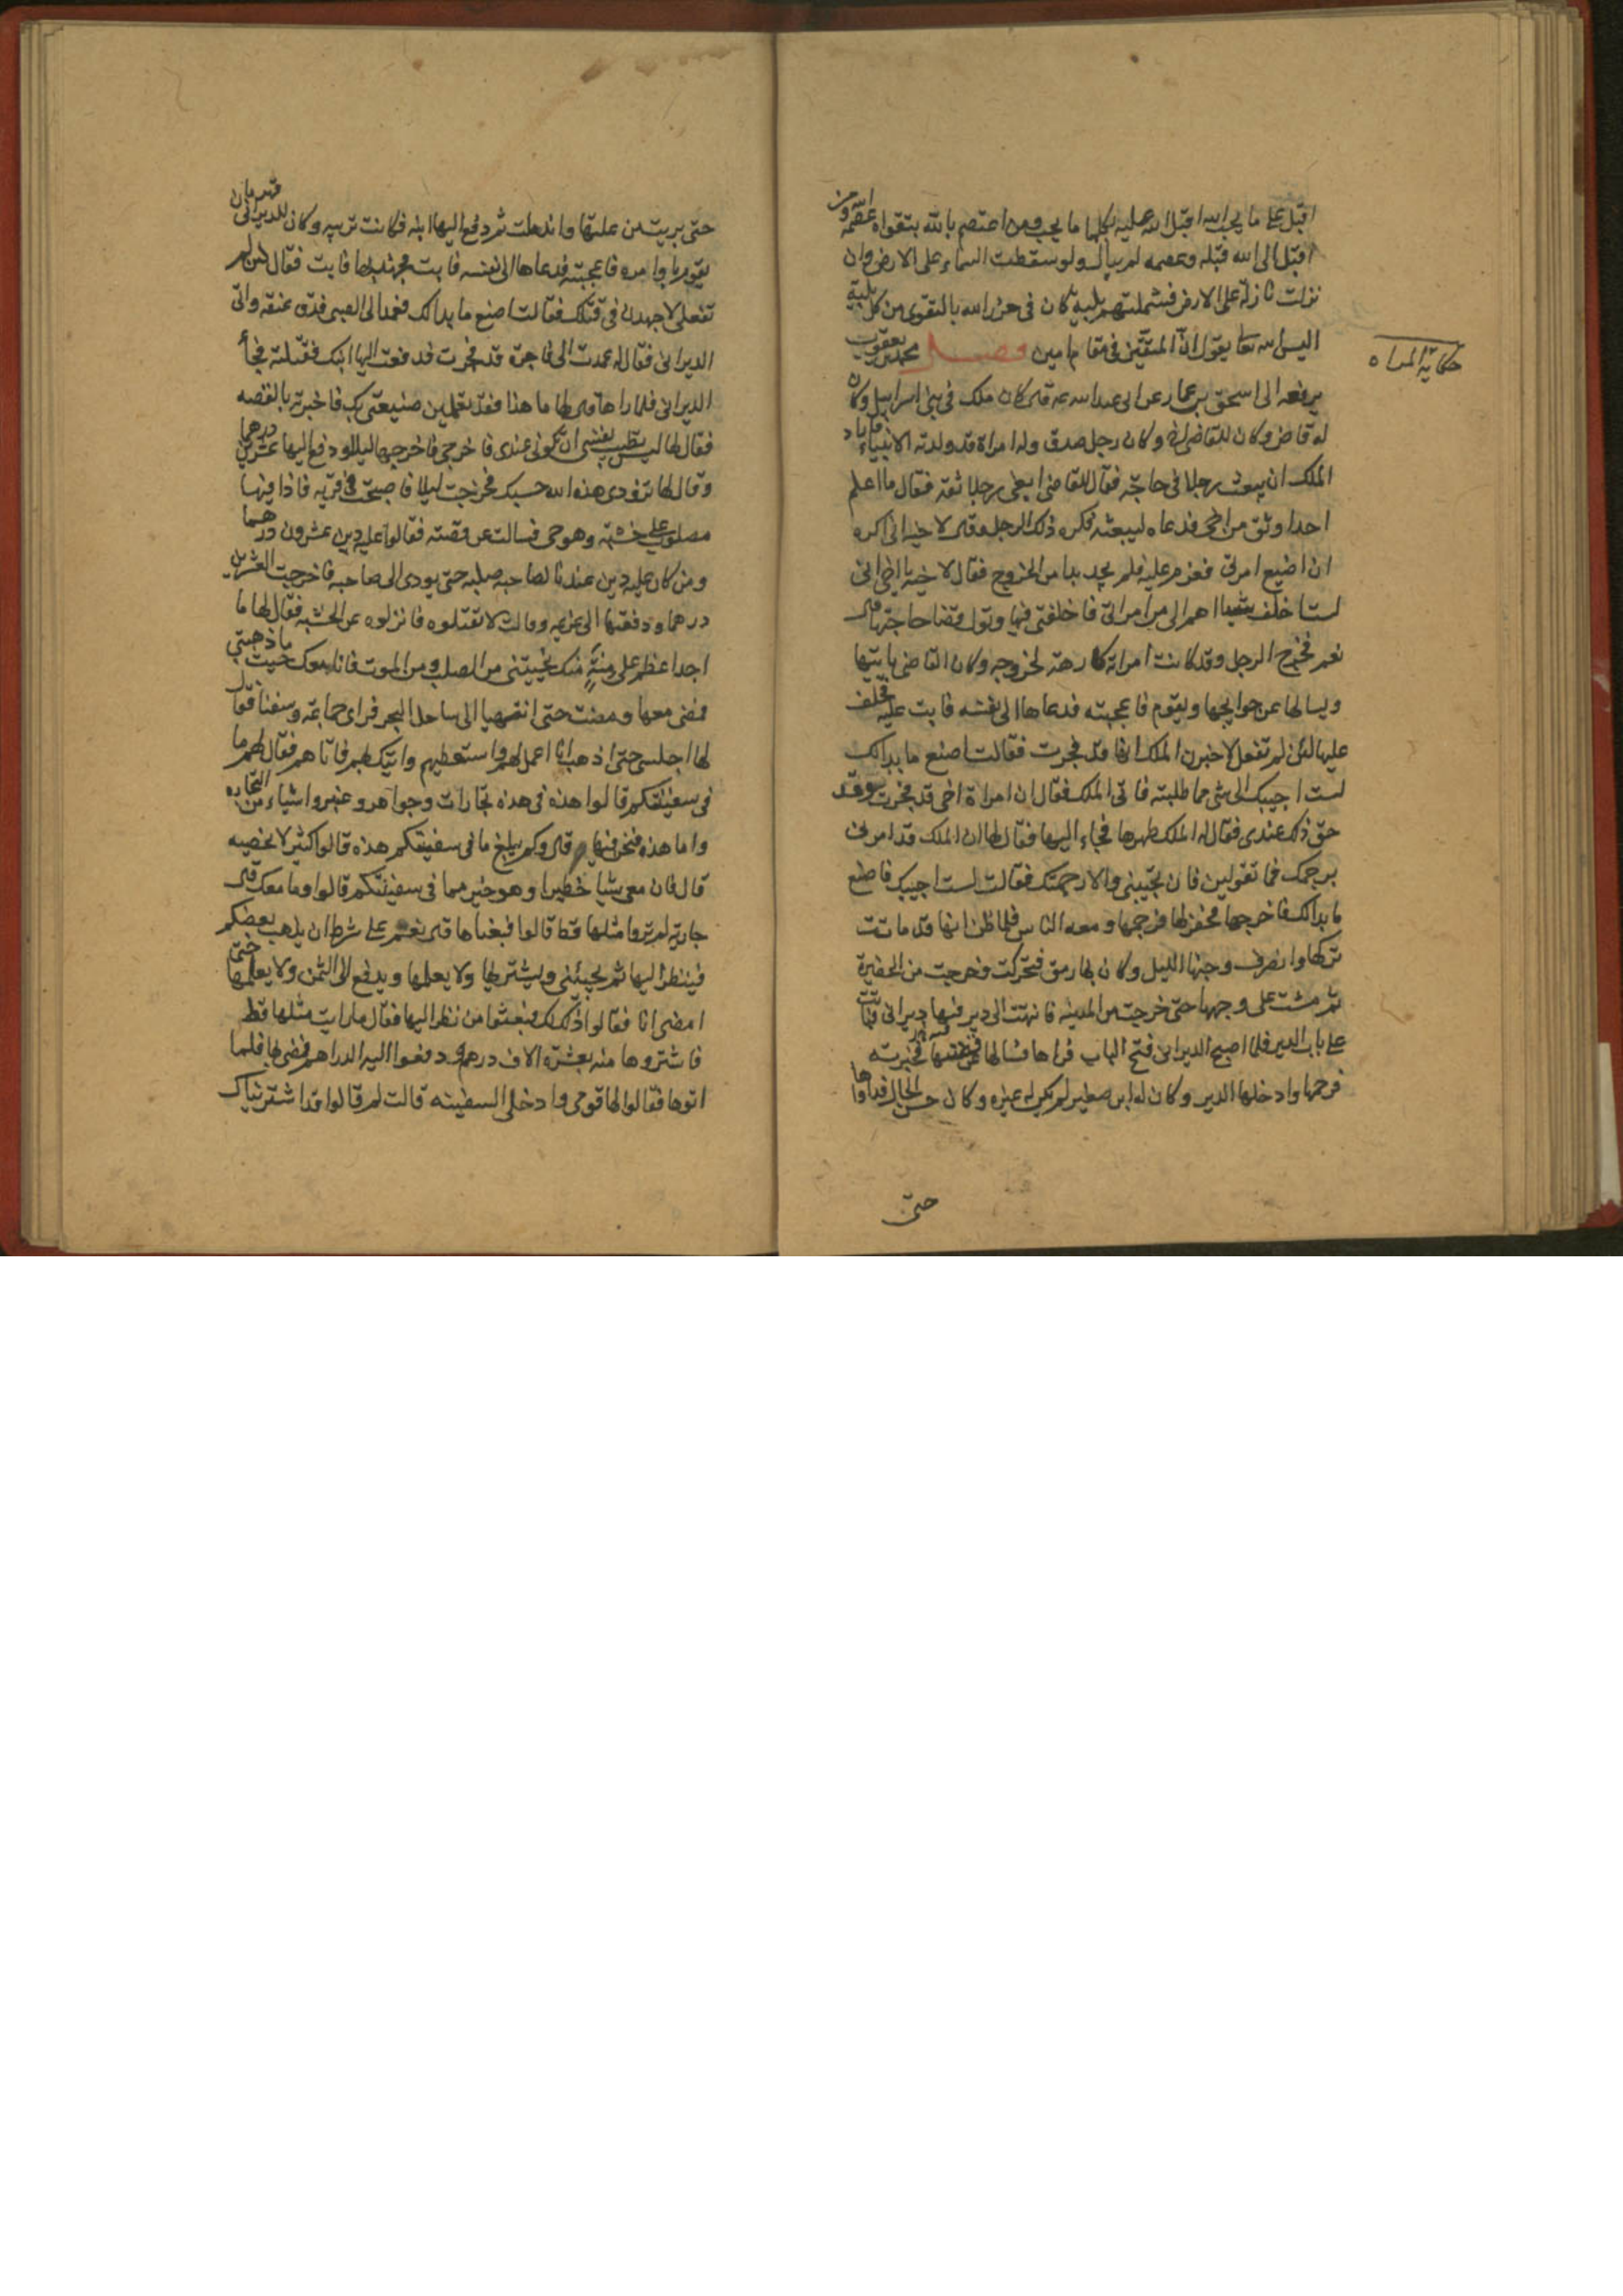 اقبل على ما يحب الله اقبل الله عليه بكلما ما يحب ومن اعتصم بالله بتقواه عصمه الله ومن
اقبل الى الله قبله وعصمه لم يبال ولو سقطت السماء على الارض وان
نزلت نازلة على الارض فشملتهم بلية كان في حرز الله بالتقوى من كل بلية
اليس الله تعا يقول ان المتقين في مقام امين فصل محمد بن يعقوب
حكاية المراه
يرفعه الى اسحق بن عمار عن ابى عبد الله ع قال كان ملك في بنى اسرائيل وكان
له قاض وكان للقاضى اخ وكان رجل صدق وله امراة قد ولدته الانبياء فاراد
الملك ان يبعث رجلا في حاجة فقال للقاضى ابغنى رجلا ثقة فقال ما اعلم
احدا اوثق من اخى فدعاه ليبعثه فكره ذلك الرجل وقال لاخيه انى اكره
ان اضيع امرتى فعزم عليه فلم يجد بدا من الخروج فقال لاخيه يا اخى انى
لست اخلف شيئا اهم الى من امراتى فاخلفنى فيها وتول قضا حاجتها قال
نعم فخرج الرجل وقد كانت امراته كارهة لخروجه وكان القاضى ياتيها
ويسالها عن حوايجها ويقوم فاعجبته فدعاها الى نفسه فابت عليه فحلف
عليها لئن لم تفعل لاخبرن الملك انها قد فجرت فقالت اصنع ما بدا لك
لست اجيبك الى شى مما طلبته فاتى الملك فقال ان امراة اخى قد فجرت وقد
حق ذلك عندى فقال له الملك طهرها فجاء اليها فقال لها ان الملك قد امرنى
برجمك فما تقولين فان تجيبنى والا رجمتك فقالت لست اجيبك فاصنع
ما بدا لك فاخرجها فحفر لها فرجمها ومعه الناس فلما ظن انها قد ماتت
تركها وانصرف وجنها الليل وكان بها رمق فتحركت وخرجت من الحفيرة
ثم مشت على وجهها حتى خرجت من المدينه فانتهت الى دير فيها ديرانى فباتت
على باب الدير فلما اصبح الديرانى فتح الباب فراها فسالها عن قصتها فخبرته
فرحمها وادخلها الدير وكان له ابن صغير لم يكن له غيره وكان حسن الحال فداواها
حتى
حتى بريت من علتها واندملت ثم دفع اليها ابنه فكانت تربيه وكان للديرانى قهرمان
يقوم باوامره فاعجبته فدعاها الى نفسه فابت فجهد بها فابت فقال لئن لم
تفعلى لاجهدن في قتلك فقالت اصنع ما بدا لك فعمد الى الصبى فدق عنقه واتى
الديرانى فقال له عمدت الى فاجرة قد فجرت فدفعت اليها ابنك فقتلته فجاء
الديرانى فلما راها قال لها ما هذا فقد تعلمين صنيعتى بك فاخبرته بالقصه
فقال لها ليس تطيب نفسى ان تكونى عندى فاخرجى فاخرجها ليلا ودفع اليها عشرين درهما
وقال لها تزودى هذه الله حسبك فخرجت ليلا فاصبحت في قريه فاذا فيها
مصلوب على خشبته وهو حى فسالت عن قصته فقالوا عليه دين عشرون درهما
ومن كان عليه دين عندنا لصاحبه صلبه حتى يودى الى صاحبه فاخرجت العشرين
درهما ودفعتها الى غريمه وقالت لا تقتلوه فانزلوه عن الخشبه فقال لها ما
احد اعظم على منة منك نجيتنى من الصلب ومن الموت فانا معك حيث ما ذهبتى
فمضى معها ومضت حتى انتهيا الى ساحل البحر فراى جماعة وسفنا فقال
لها اجلسى حتى اذهب انا اعمل لهم واستعطيهم واتيك بهم فاتاهم فقال لهم ما
في سفينتكم قالوا هذه في هذه تجارات وجواهر وعنبر واشياء من التجاره
واما هذه فنحن فيها قال وكم يبلغ ما في سفينتكم هذه قالوا كثير لا نحصيه
قال فان معى شيا خطيرا وهو خير مما في سفينتكم قالوا وما معك قال
جارية لم تروا مثلها قط قالوا فبعناها قال نعم على شرط ان يذهب بعضكم
فينظر اليها ثم يجيئنى ويشتريها ولا يعلمها ويدفع الى الثمن ولا يعلمها حتى
امضى انا فقالوا ذلك لك فبعثوا من نظر اليها فقال ما رايت مثلها قط
فاشتروها منه بعشرة الاف درهم ودفعوا اليه الدراهم فمضى بها فلما
اتوها فقالوا لها قومى وادخلى السفينه قالت لم قالوا قد اشتريناك